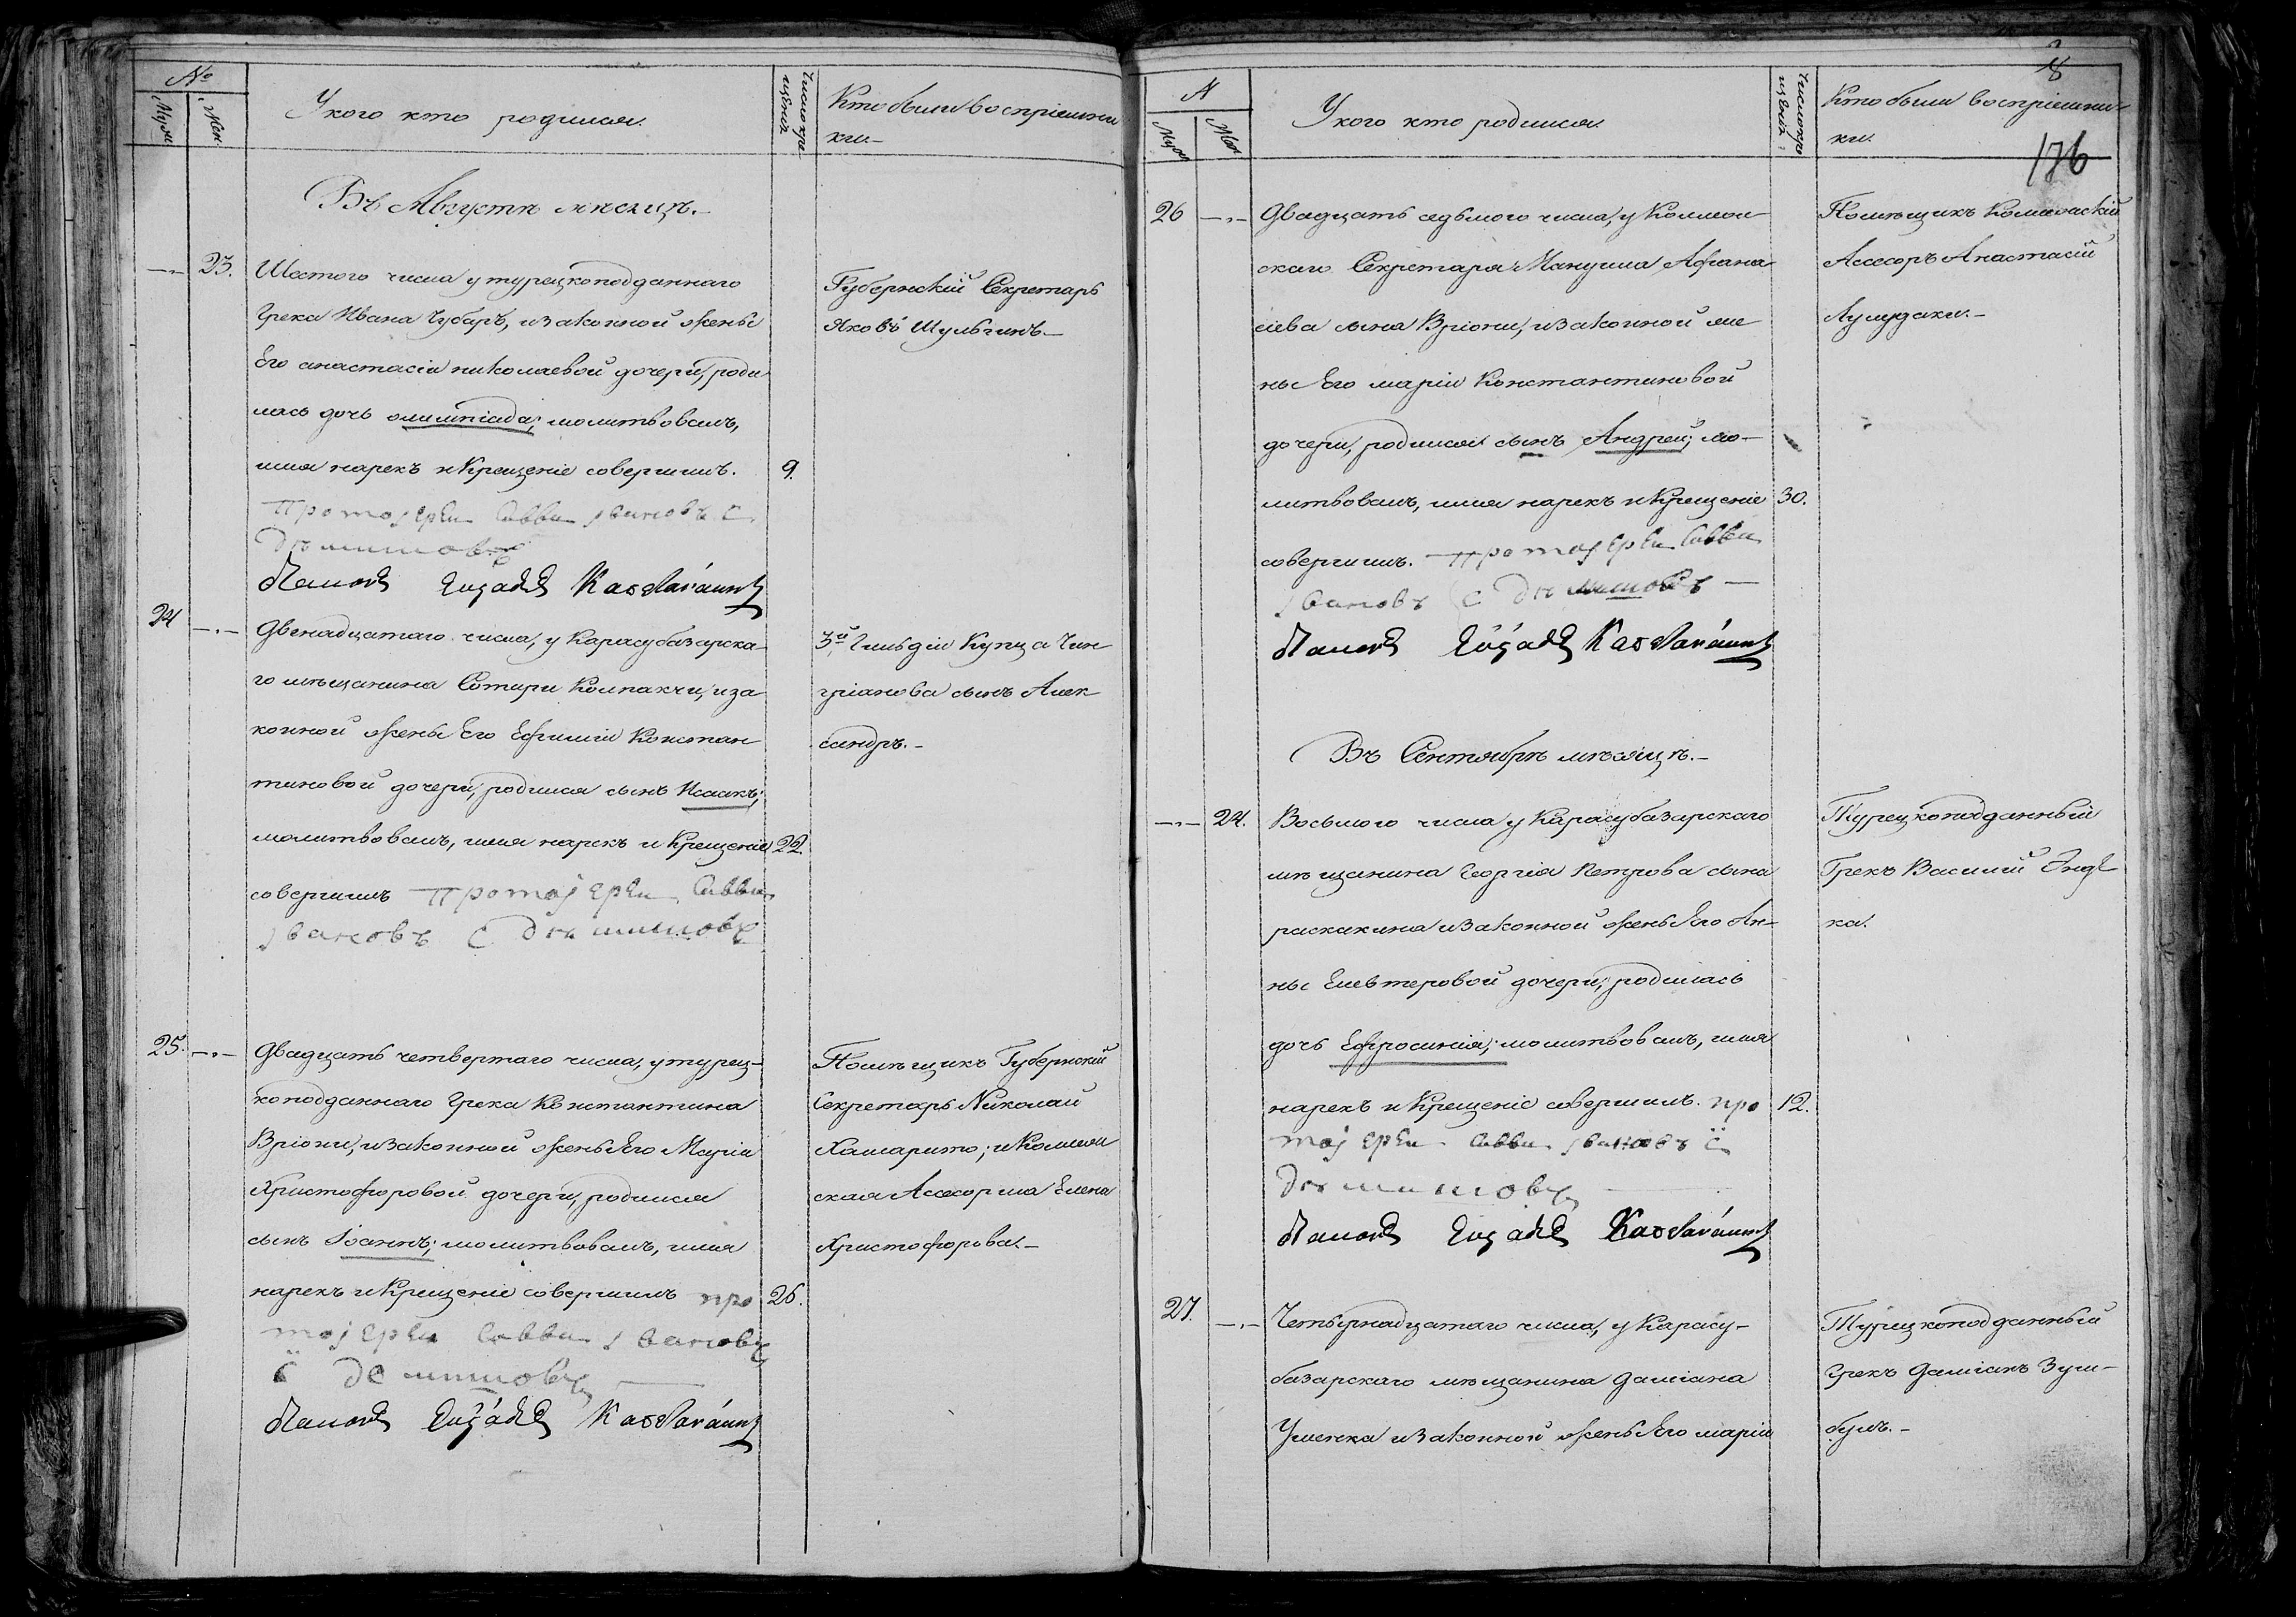 №
Муж
Жен
У кого кто родился.
Число кре
щенія
Кто были воспріемни
ки.-
Въ Августѣ мѣсяцѣ.-
23.
Шестого числа у турецкоподданнаго
Грека Ивана Чубаръ, и законной жены
Его анастасіи николаевой дочери, роди
лась дочь олимпіада; молитвовалъ,
имя нарекъ и Крещеніе совершилъ.
9.
Губернскій Секретарь
Яковъ Шульгинъ.-
протојерей Савва јвановъ С.
24
Двенадцатаго числа, у Карасубазарска
го мѣщанина Сотири Колпакчи, и за
конной жены Его Ефиміи Констан
тиновой дочери, родился сынъ Исаакъ;
молитвовалъ, имя нарекъ и Крещеніе
22.
совершилъ протојерей Савва
јвановъ С
3й Гильдіи Купца Чин
гріанова сынъ Алек
сандръ.-
25.
Двадцать четвертаго числа, у турец-
коподданнаго Грека Константина
Вріони, и законной жены Его Маріи
Христофоровой дочери, родился
сынъ Іоаннъ; молитвовалъ, имя
нарекъ и Крещеніе совершилъ про
26.
тојерей Савва јвановъ
С
Помѣщикъ Губернскій
Секретарь Николай
Хамарито; и Коллеж
ская Ассесорша Елена
Христофорова.-
8
176
№
Муж
Жен
У кого кто родился.
Число кре
щенія
Кто были воспріемни-
ки.
26
Двадцать седьмого числа, у Коллеж-
скаго Секретаря Мануила Афана
сіева сына Вріони, и законной же
ны Его маріи Константиновой
дочери, родился сынъ Андрей; мо-
литвовалъ, имя нарекъ и Крещеніе
30.
совершилъ. протојерей Савва
јвановъ С
Помѣщикъ Коллежскій
Ассесоръ Анастасій
Въ Сентябрѣ мѣсяцѣ.-
24.
Восьмого числа у Карасубазарскаго
мѣщанина Георгія Петрова сына
раскакина и законной жены Его Ан-
ны Елевтеровой дочери, родилась
дочь Ефросинія; молитвовалъ, имя
нарекъ и Крещеніе совершилъ. про
12.
тојерей Савва јвановъ С
Турецкоподданный
Грекъ Василій
ка.
27.
Четырнадцатаго числа, у Карасу-
базарскаго мѣщанина Даміана
Уленка и законной жены Его маріи
Турецкоподданный
Грекъ Даміанъ Зум-
булъ.-